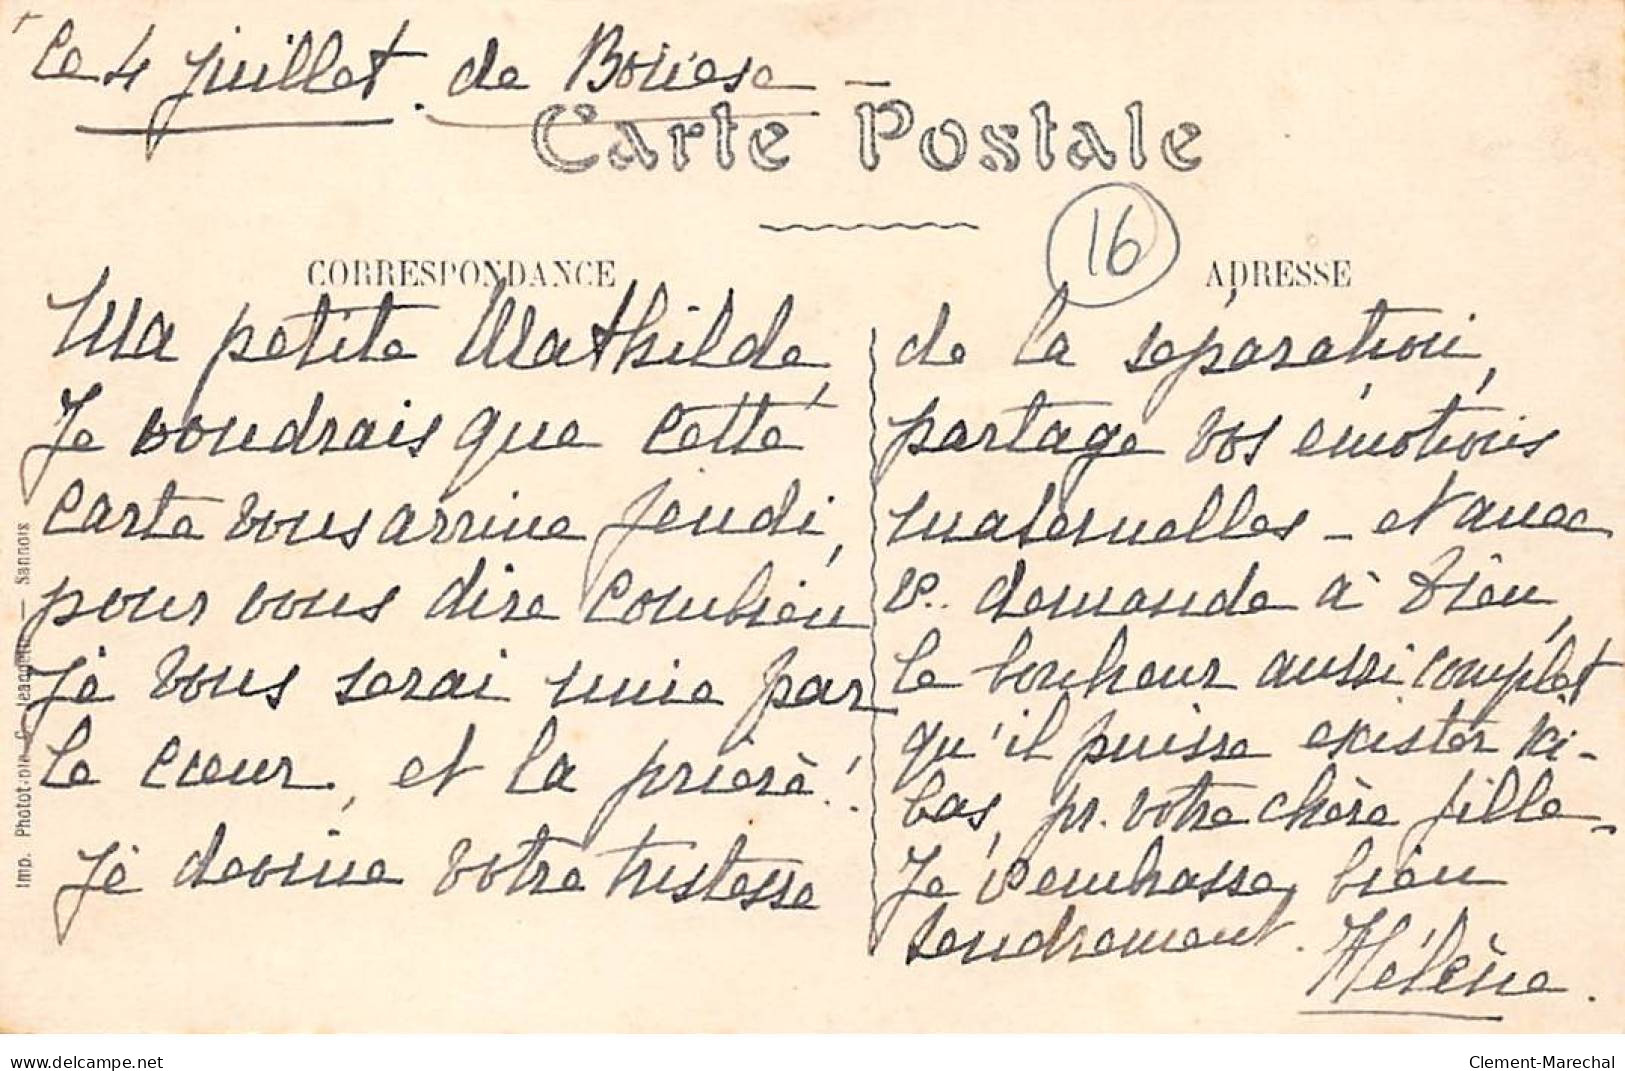 Le 4 juillet. de Bouesse -
Carte Postale
16
CORRESPONDANCE
Ma petite Mathilde,
Je voudrais que cette
carte vous arrive jeudi,
pour vous dire combien
je vous serai unie par
le cœur, et la prière!!
Je devine votre tristesse
ADRESSE
de la séparation,
partage vos émotions
maternelles - et avec
v.. demande à Dieu,
le bonheur aussi complet
qu'il puisse exister ici-
bas, pr. votre chère fille -
Je v. embrasse, bien
tendrement.
Hélène.
Imp. Phototypie - Sannois
delcampe.net
Clement-Marechal